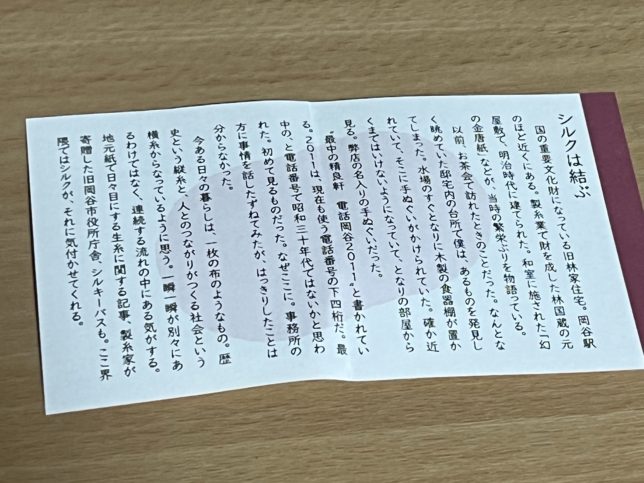 シルクは結ぶ
国の重要文化財になっている旧林家住宅。岡谷駅
のほど近くにある。製糸業で財を成した林国蔵の元
屋敷で、明治時代に建てられた。和室に施された「幻
の金唐紙」などが、当時の繁栄ぶりを物語っている。
以前、お茶会で訪れたときのことだった。なんとな
く眺めていた邸宅内の台所で僕は、あるものを発見し
てしまった。水場のすぐとなりに木製の食器棚が置か
れていて、そこに手ぬぐいがかけられていた。確か近
くまではいけないようになっていて、となりの部屋から
見る。弊店の名入りの手ぬぐいだった。
“最中の精良軒 電話岡谷2011”と書かれてい
る。2011は、現在も使う電話番号の下四桁だ。最
中の、と電話番号で昭和三十年代ではないかと思わ
れた。初めて見るものだった。なぜここに。事務所の
方に事情を話したずねてみたが、はっきりしたことは
分からなかった。
今ある日々の暮らしは、一枚の布のようなもの。歴
史という縦糸と、人とのつながりがつくる社会という
横糸からなっているように思う。一瞬一瞬が別々にあ
るわけではなく、連続する流れの中にある気がする。
地元紙で日々目にする生糸に関する記事、製糸家が
寄贈した旧岡谷市役所庁舎、シルキーバスも。ここ界
隈ではシルクが、それに気付かせてくれる。